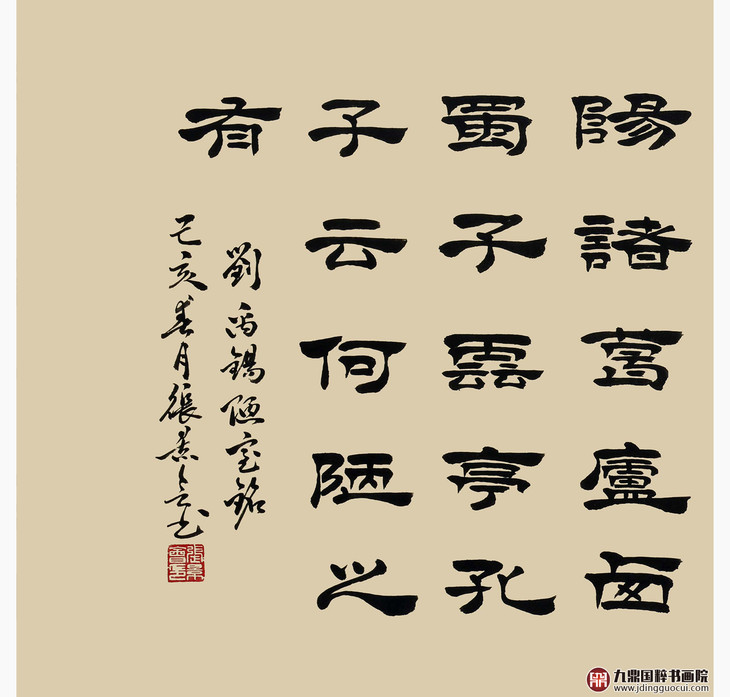 陽諸葛廬西
蜀子雲亭孔
子云何陋之
有
劉禹錫陋室銘
己亥春月張景會書
張景會印
九鼎国粹书画院
www.jdingguocui.com